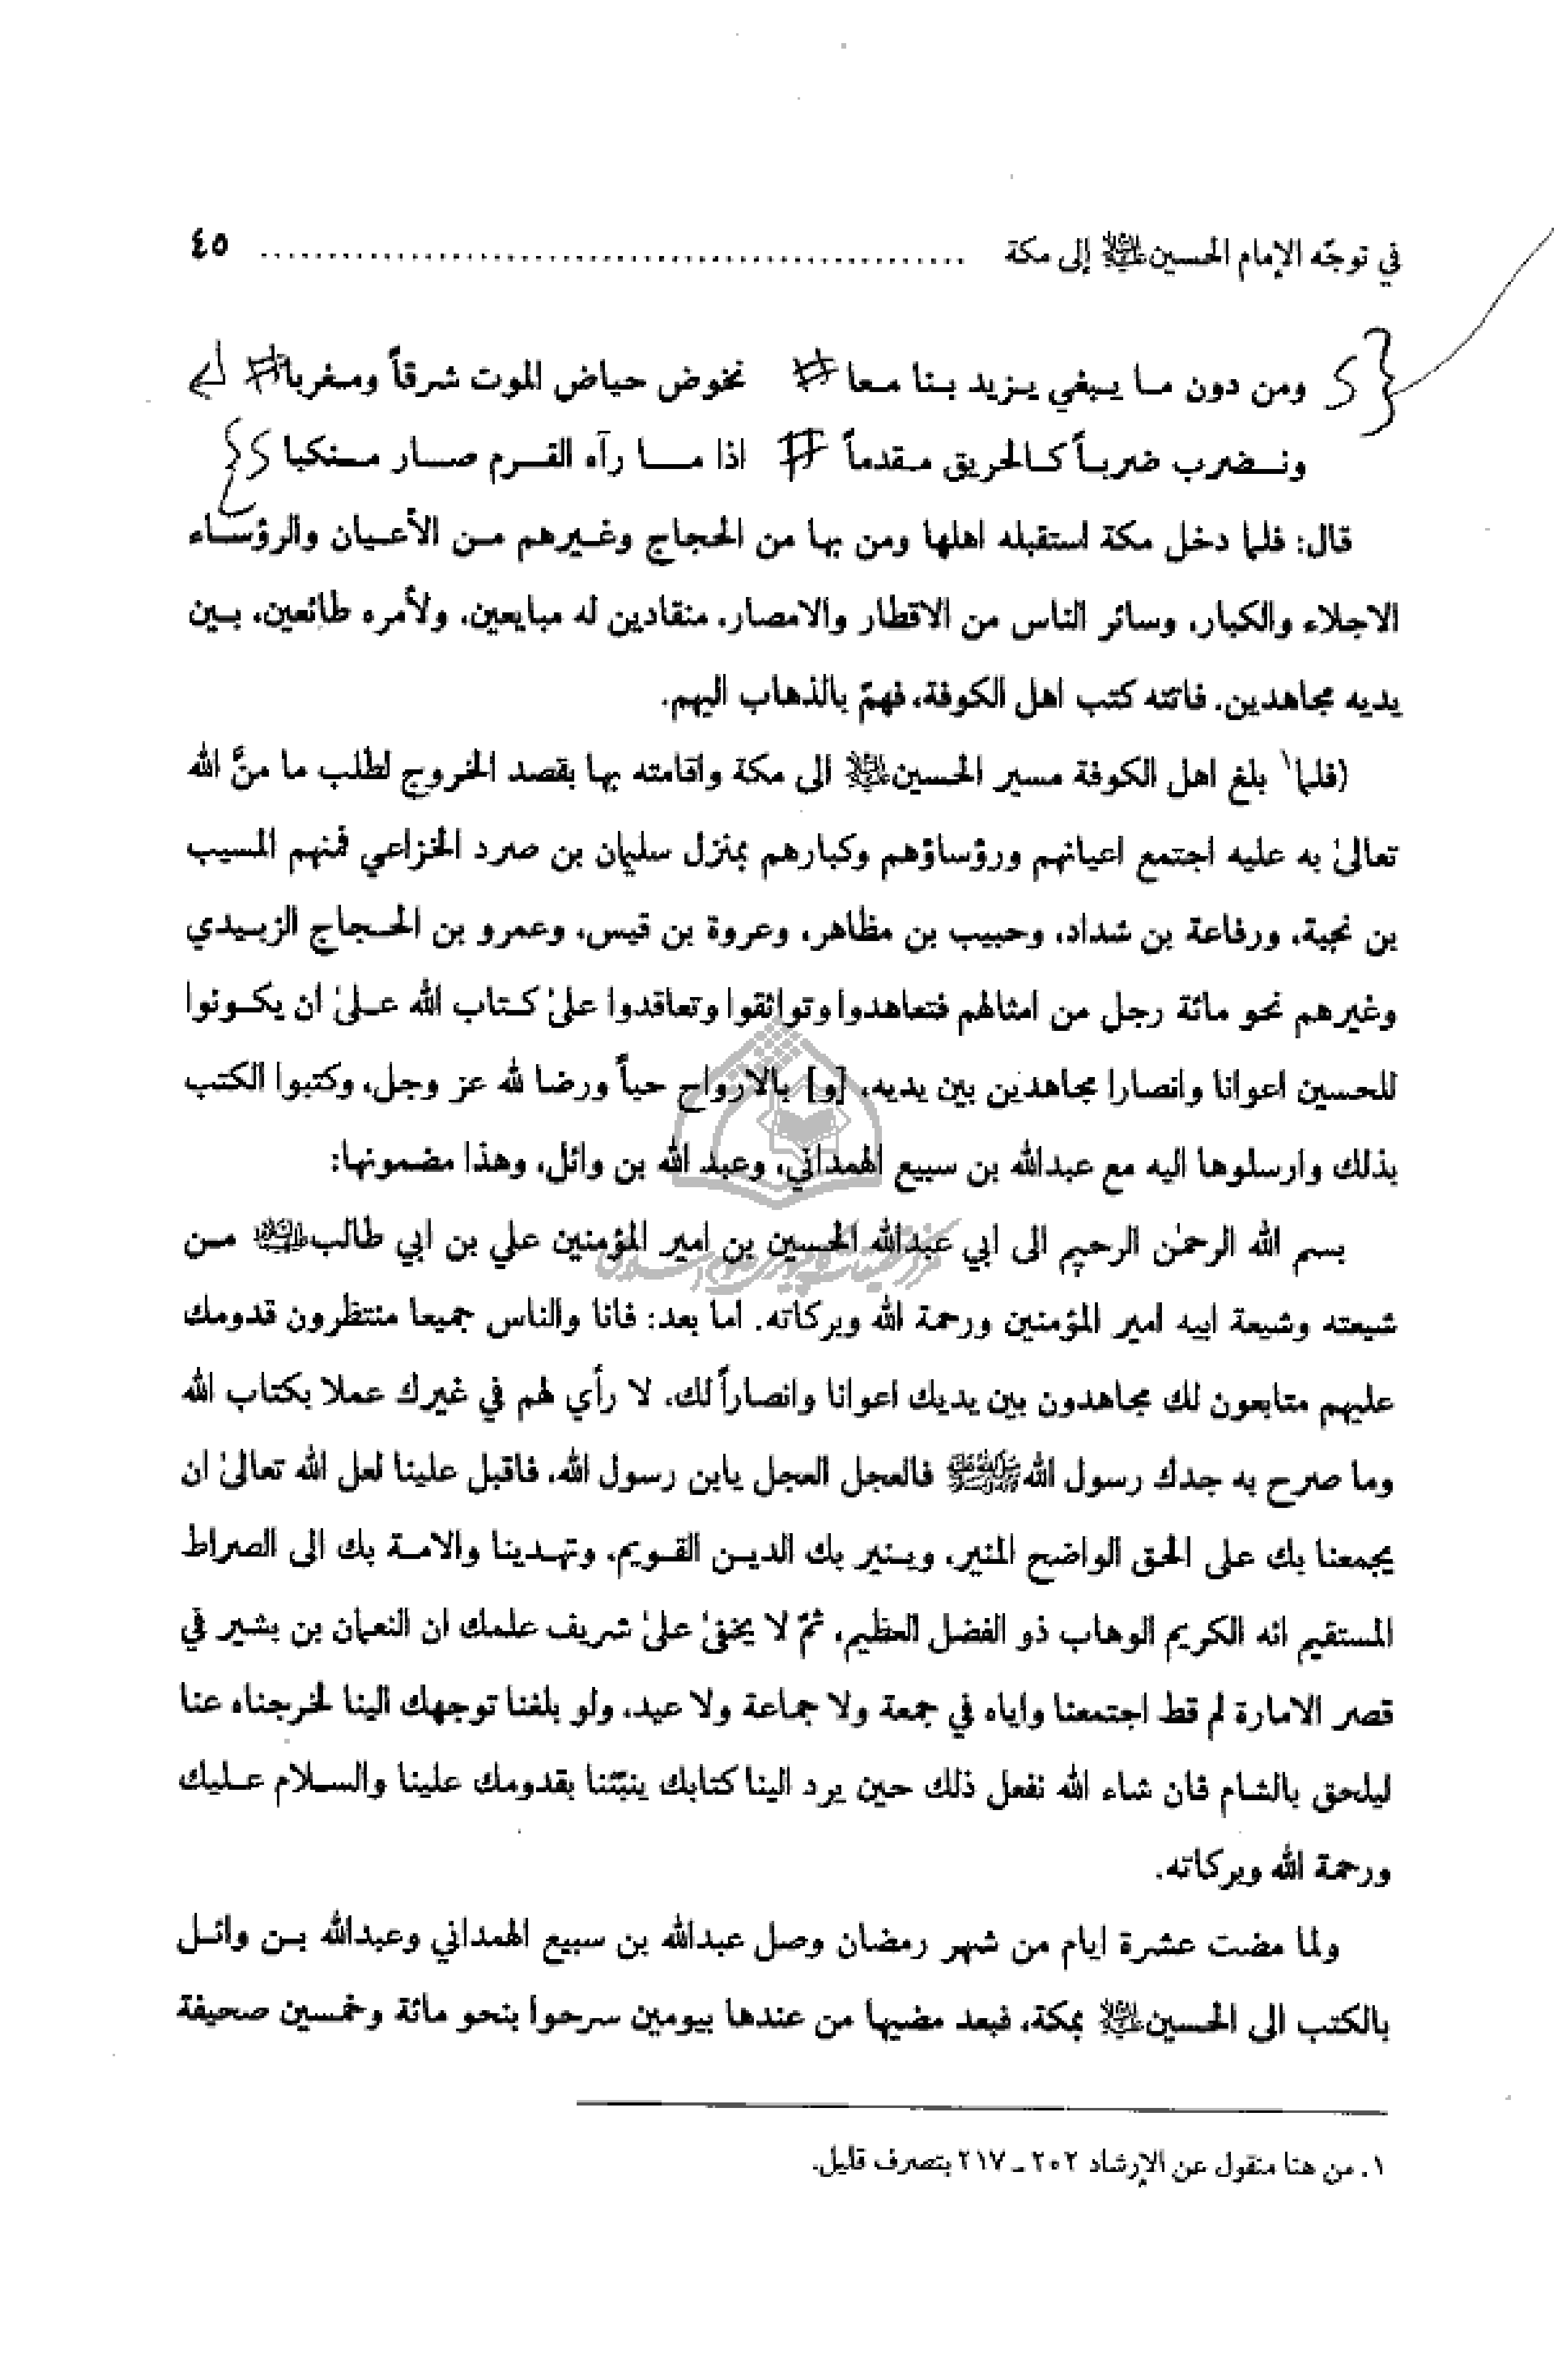 في توجّه الإمام الحسين عليه السلام إلى مكة ........................................ ٤٥
ومن دون ما يبغي يزيد بنا معا # نخوض حياض الموت شرقاً ومغربا #
ونضرب ضرباً كالحريق مقدماً # اذا ما رآه القرم صار منكبا
قال: فلما دخل مكة استقبله اهلها ومن بها من الحجاج وغيرهم من الأعيان والرؤساء
الاجلاء والكبار، وسائر الناس من الاقطار والامصار، منقادين له مبايعين، ولأمره طائعين، بين
يديه مجاهدين. فاتته كتب اهل الكوفة، فهمّ بالذهاب اليهم.
(فلما١ بلغ اهل الكوفة مسير الحسين عليه السلام الى مكة واقامته بها بقصد الخروج لطلب ما منَّ الله
تعالىٰ به عليه اجتمع اعيانهم ورؤساؤهم وكبارهم بمنزل سليمان بن صرد الخزاعي فمنهم المسيب
بن نجبة، ورفاعة بن شداد، وحبيب بن مظاهر، وعروة بن قيس، وعمرو بن الحجاج الزبيدي
وغيرهم نحو مائة رجل من امثالهم فتعاهدوا وتواثقوا وتعاقدوا علىٰ كتاب الله علىٰ ان يكونوا
للحسين اعوانا وانصارا مجاهدين بين يديه، [و] بالارواح حباً ورضا لله عز وجل، وكتبوا الكتب
بذلك وارسلوها اليه مع عبدالله بن سبيع الهمداني، وعبد الله بن وائل، وهذا مضمونها:
بسم الله الرحمٰن الرحيم الى ابي عبدالله الحسين بن امير المؤمنين علي بن ابي طالب عليه السلام من
شيعته وشيعة ابيه امير المؤمنين ورحمة الله وبركاته. اما بعد: فانا والناس جميعا منتظرون قدومك
عليهم متابعون لك مجاهدون بين يديك اعوانا وانصاراً لك، لا رأي لهم في غيرك عملا بكتاب الله
وما صرح به جدك رسول الله صلى الله عليه وآله فالعجل العجل يابن رسول الله، فاقبل علينا لعل الله تعالىٰ ان
يجمعنا بك على الحق الواضح المنير، وينير بك الدين القويم، وتهدينا والامة بك الى الصراط
المستقيم انه الكريم الوهاب ذو الفضل العظيم، ثمّ لا يخفىٰ علىٰ شريف علمك ان النعمان بن بشير في
قصر الامارة لم قط اجتمعنا واياه في جمعة ولا جماعة ولا عيد، ولو بلغنا توجهك الينا لخرجناه عنا
ليلحق بالشام فان شاء الله نفعل ذلك حين يرد الينا كتابك ينبّئنا بقدومك علينا والسلام عليك
ورحمة الله وبركاته.
ولما مضت عشرة ايام من شهر رمضان وصل عبدالله بن سبيع الهمداني وعبدالله بن وائل
بالكتب الى الحسين عليه السلام بمكة، فبعد مضيها من عندها بيومين سرحوا بنحو مائة وخمسين صحيفة
١. من هنا منقول عن الإرشاد ٢٠٢ ـ ٢١٧ بتصرف قليل.